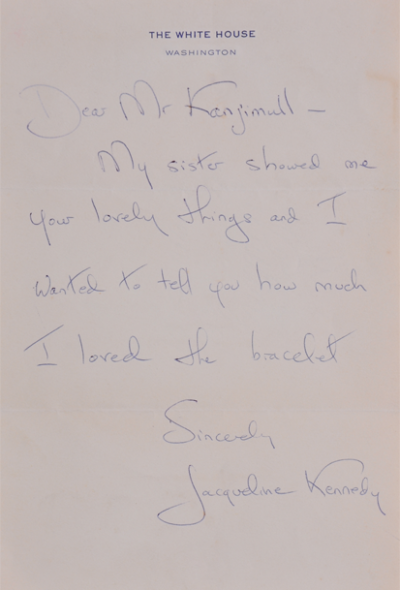 THE WHITE HOUSE
WASHINGTON
Dear Mr Kanjimull —
My sister showed me
your lovely things and I
wanted to tell you how much
I loved the bracelet
Sincerely
Jacqueline Kennedy